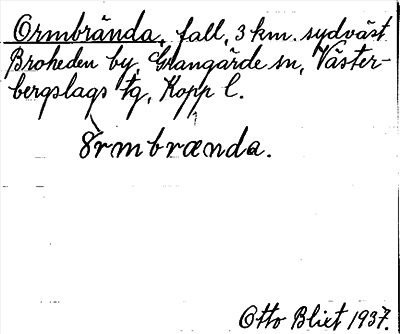 Ormbrända, fall, 3 km. sydväst
Broheden by, Grangärde sn, Väster-
bergslags tg, Kopp l.
rmbrænda.
Otto Blixt 1937.